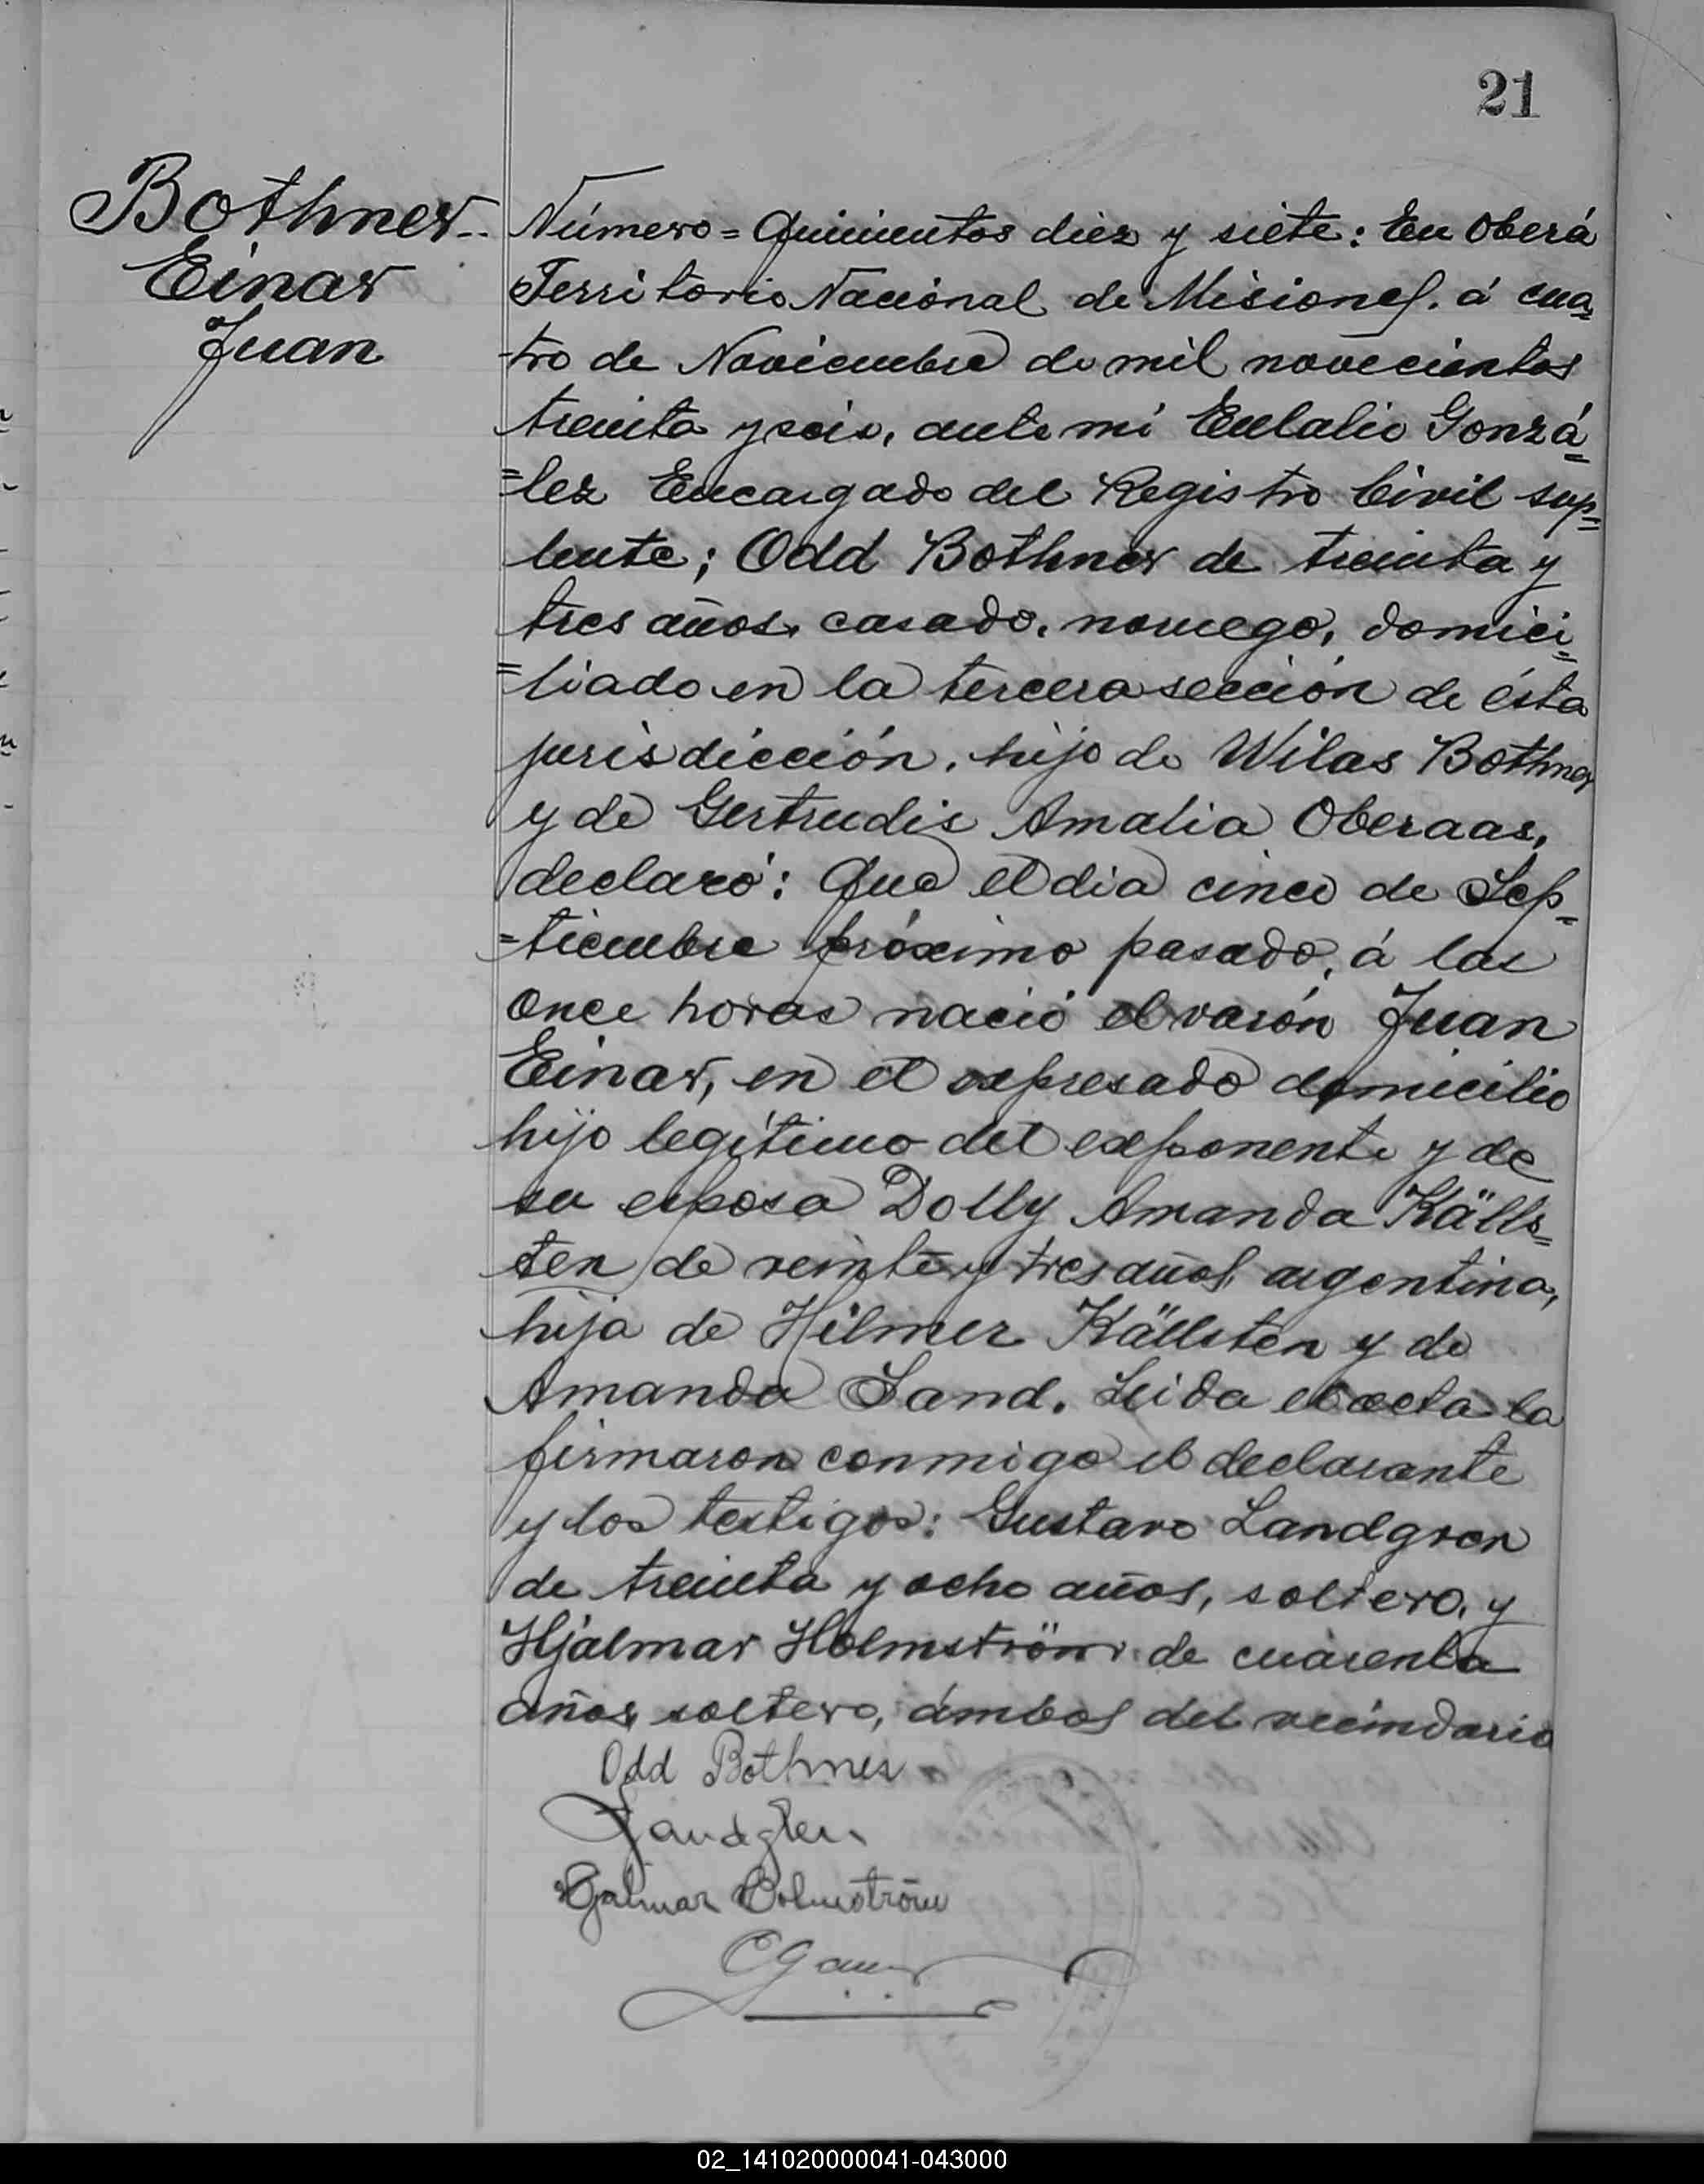 21
Bothner
Einar
Juan
Número = Quinientos diez y siete: En Oberá
Territorio Nacional de Misiones, á cua=
tro de Noviembre de mil novecientos
treinta y seis, ante mí Eulalio Gonzá=
=lez Encargado del Registro Civil sup=
lente; Odd Bothner de treinta y
tres años, casado, noruego, domici=
=liado en la tercera sección de ésta
jurisdicción, hijo de Wilas Bothner
y de Gertrudis Amalia Oberaas,
declaró: Que el dia cinco de Sep=
=tiembre próximo pasado, á las
once horas nació el varón Juan
Einar, en el expresado domicilio
hijo legítimo del exponente y de
su esposa Dolly Amanda Källs=
ten de veinte y tres años, argentina,
hija de Hilmer Källsten y de
Amanda Sand. Leida el acta la
firmaron conmigo el declarante
y los testigos: Gustavo Landgren
de treinta y ocho años, soltero, y
Hjalmar Holmström de cuarenta
años, soltero, ámbos del vecindario
Odd Bothner
Landgren
Hjalmar Holmström
02_141020000041-043000